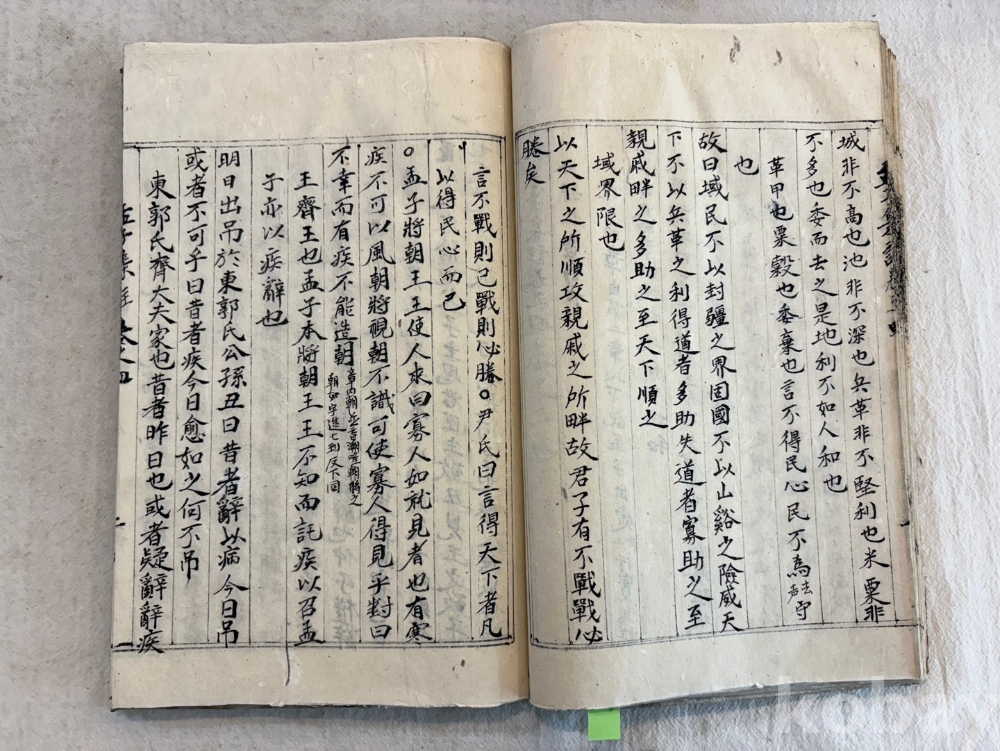 城非不高也池非不深也兵革非不堅利也米粟非
不多也委而去之是地利不如人和也
革甲也粟穀也委棄也言不得民心民不爲去聲守
也
故曰域民不以封疆之界固國不以山谿之險威天
下不以兵革之利得道者多助失道者寡助之至
親戚畔之多助之至天下順之
域界限也
以天下之所順攻親戚之所畔故君子有不戰戰必
勝矣
言不戰則已戰則必勝○尹氏曰言得天下者凡
以得民心而已
○孟子將朝王王使人來曰寡人如就見者也有寒
疾不可以風朝將視朝不識可使寡人得見乎對曰
不幸而有疾不能造朝
章內朝並音潮唯朝將之
朝如字造七到反下同
王齊王也孟子本將朝王王不知而託疾以召孟
子亦以疾辭也
明日出吊於東郭氏公孫丑曰昔者辭以病今日吊
或者不可乎曰昔者疾今日愈如之何不吊
東郭氏齊大夫家也昔者昨日也或者疑辭辭疾
孟子集註 卷之四
kobay